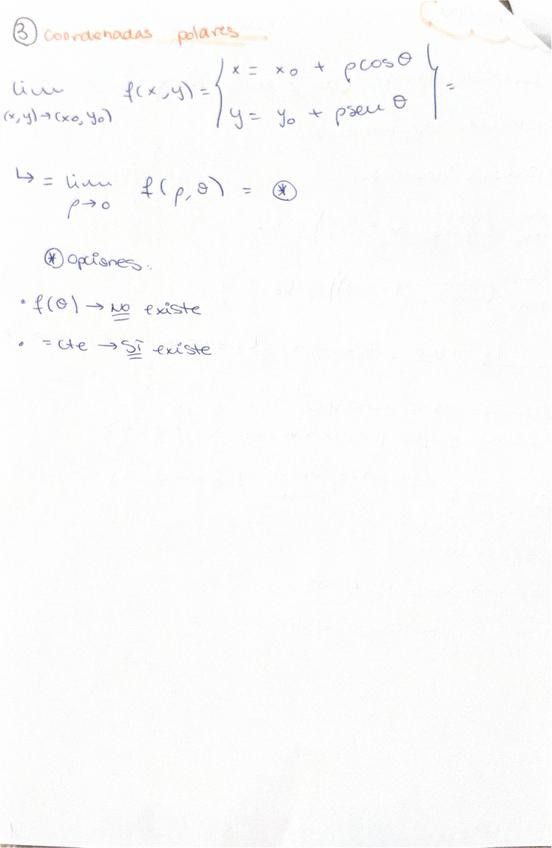 ③ coordenadas polares
lim f(x,y) = { x = x₀ + ρcosθ
(x,y)→(x₀,y₀) y = y₀ + ρsenθ } =
↳ = lim f(ρ,θ) = ⊛
ρ→0
⊛ opciones:
• f(θ) → NO existe
• = cte → SÍ existe